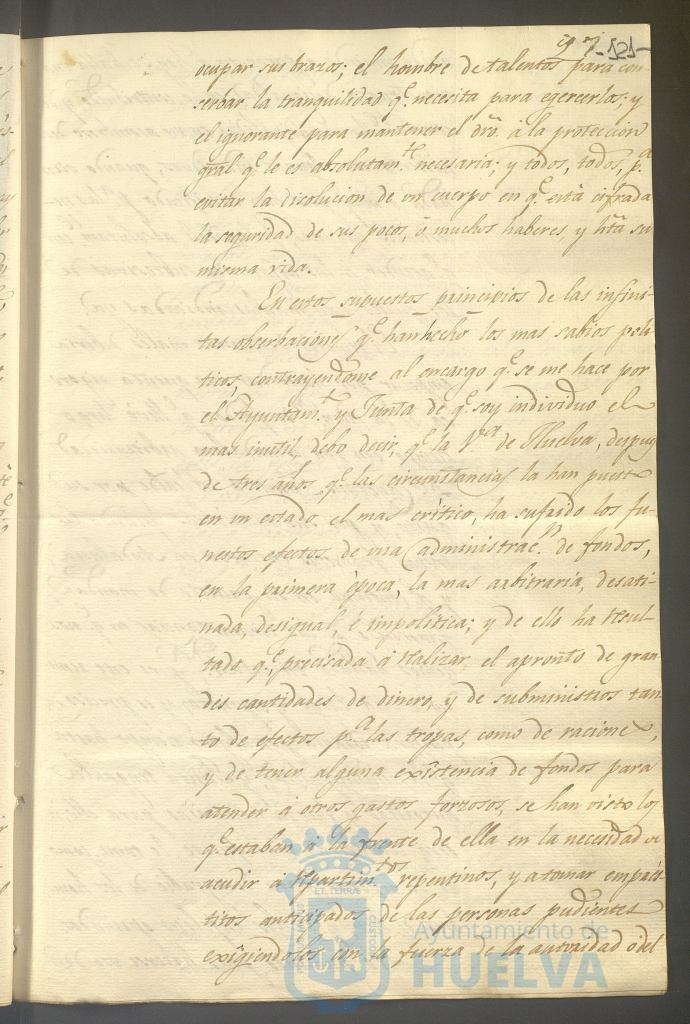 121
ocupar sus brazos; el hombre de talentos para con-
serbar la tranquilidad q.e necesita para egercerlos; y
el ignorante para mantener el dro. á la proteccion
gral q.e le es absolutam.te necesaria; y todos, todos, p.a
evitar la disolucion de un cuerpo en q.e está cifrada
la seguridad de sus pocos, ó muchos haberes, y hta su
misma vida.
En estos supuestos principios de las infini-
tas obserbaciones q.e han hecho los mas sabios poli-
ticos, contrayendome al encargo q.e se me hace por
el Ayuntam.to y Junta de q.e soy individuo el
mas inutil, debo decir, q.e la V.a de Huelva, despues
de tres años q.e las circunstancias la han puesto
en un estado el mas crítico, ha sufrido los fu-
nestos efectos de una administrac.n de fondos,
en la primera època, la mas arbitraria, desati-
nada, desigual, é impolitica; y de ello ha resul-
tado q.e, precisada á realizar el apronto de gran-
des cantidades de dinero, y de subministros tan-
to de efectos p.a las tropas, como de raciones,
y de tener alguna existencia de fondos para
atender á otros gastos forzosos, se han visto los
q.e estaban á la frente de ella en la necesidad de
acudir á repartim.tos repentinos, y a tomar emprés-
titos anticipados de las personas pudientes
exigiendolos con la fuerza de la autoridad ó del
Ayuntamiento de
HUELVA